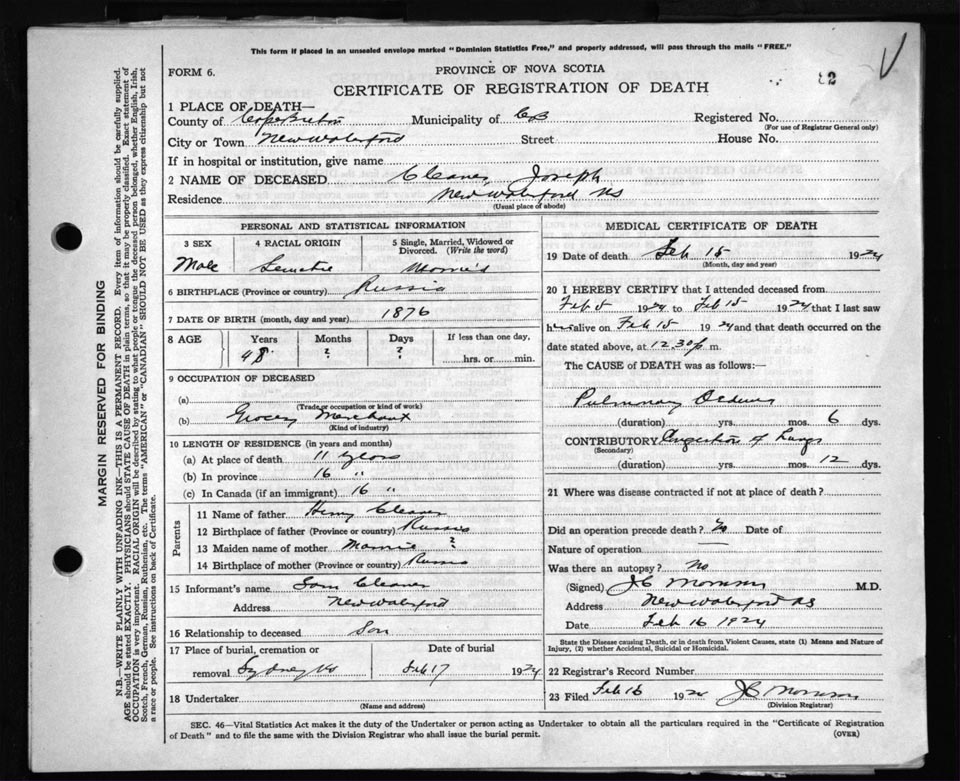 This form if placed in an unsealed envelope marked "Dominion Statistics Free," and properly addressed, will pass through the mails "FREE."
FORM 6.
PROVINCE OF NOVA SCOTIA
82
CERTIFICATE OF REGISTRATION OF DEATH
1 PLACE OF DEATH—
County of Cape Breton Municipality of CB Registered No.
(For use of Registrar General only)
City or Town New Waterford Street House No.
If in hospital or institution, give name
2 NAME OF DECEASED Cleaner Joseph
Residence New Waterford NS
(Usual place of abode)
PERSONAL AND STATISTICAL INFORMATION
3 SEX
Male
4 RACIAL ORIGIN
5 Single, Married, Widowed or Divorced. (Write the word)
6 BIRTHPLACE (Province or country) Russia
7 DATE OF BIRTH (month, day and year) 1876
8 AGE
Years
48
Months
?
Days
?
If less than one day,
hrs. or min.
9 OCCUPATION OF DECEASED
(a)
(Trade or occupation or kind of work)
(b) Grocery Merchant
(Kind of industry)
10 LENGTH OF RESIDENCE (in years and months)
(a) At place of death 11 years
(b) In province 16 "
(c) In Canada (if an immigrant) 16 "
Parents
11 Name of father Henry Cleaner
12 Birthplace of father (Province or country) Russia
13 Maiden name of mother ?
14 Birthplace of mother (Province or country) Russia
15 Informant's name Sam Cleaner
Address New Waterford
16 Relationship to deceased Son
17 Place of burial, cremation or removal Sydney NS
Date of burial
Feb 17 1924
18 Undertaker
(Name and address)
MEDICAL CERTIFICATE OF DEATH
19 Date of death Feb 15 1924
(Month, day and year)
20 I HEREBY CERTIFY that I attended deceased from
Feb 5 1924 to Feb 15 1924 that I last saw
him alive on Feb 15 1924 and that death occurred on the
date stated above, at 12.30 p. m.
The CAUSE of DEATH was as follows:—
Pulmonary Oedema
(duration) yrs. mos. 6 dys.
CONTRIBUTORY Congestion of Lungs
(Secondary)
(duration) yrs. mos. 12 dys.
21 Where was disease contracted if not at place of death?
Did an operation precede death? No Date of
Nature of operation
Was there an autopsy? No
(Signed) J C Morrison M.D.
Address New Waterford NS
Date Feb 16 1924
State the Disease causing Death, or in death from Violent Causes, state (1) Means and Nature of
Injury, (2) whether Accidental, Suicidal or Homicidal.
22 Registrar's Record Number
23 Filed Feb 16 1924 J C Morrison
(Division Registrar)
SEC. 46—Vital Statistics Act makes it the duty of the Undertaker or person acting as Undertaker to obtain all the particulars required in the "Certificate of Registration
of Death" and to file the same with the Division Registrar who shall issue the burial permit.
(OVER)
MARGIN RESERVED FOR BINDING
N.B.—WRITE PLAINLY WITH UNFADING INK—THIS IS A PERMANENT RECORD. Every item of information should be carefully supplied.
AGE should be stated EXACTLY. PHYSICIANS should STATE CAUSE OF DEATH in plain terms, so that it may be properly classified. Exact statement of
OCCUPATION is very important. RACIAL ORIGIN will be described by stating to what people or tongue the deceased person belonged, whether English, Irish,
Scotch, French, German, Russian, Ruthenian, etc. The terms "AMERICAN" or "CANADIAN" SHOULD NOT BE USED as they express citizenship but not
a race or people. See instructions on back of Certificate.